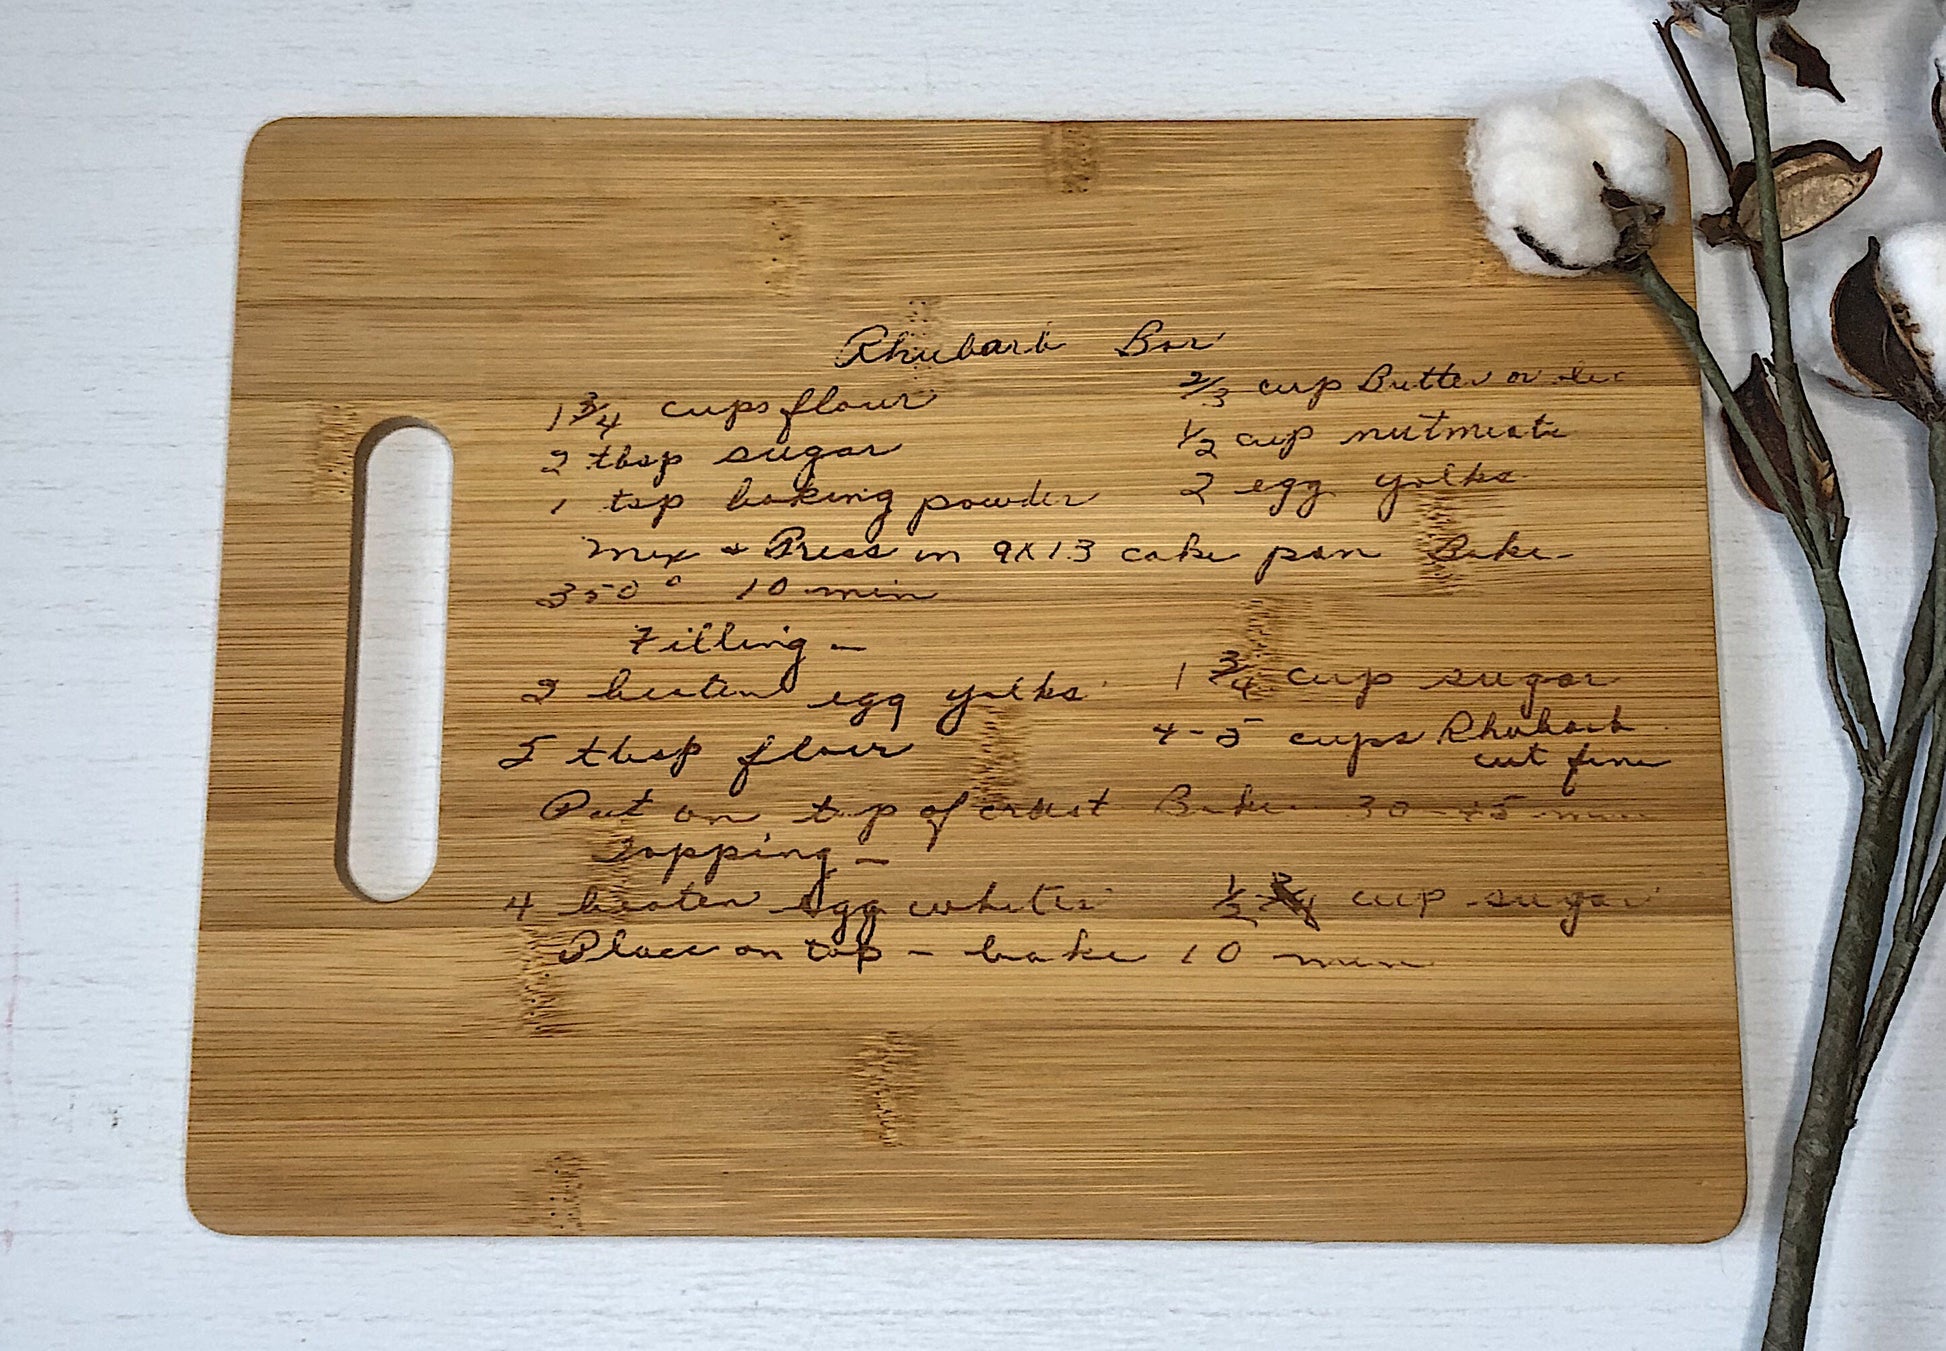 Rhubarb Bar
1 3/4 cups flour 2/3 cup Butter or
2 tbsp sugar 1/2 cup nutmeats
1 tsp baking powder 2 egg yolks
Mix + Press in 9X13 cake pan Bake-
350° 10 min
Filling -
2 beaten egg yolks 1 3/4 cup sugar
5 tbsp flour 4-5 cups Rhubarb
cut fine
Put on top of crust Bake 30-45 min
Topping -
4 beaten egg whites 1/2 cup sugar
Place on top - bake 10 min